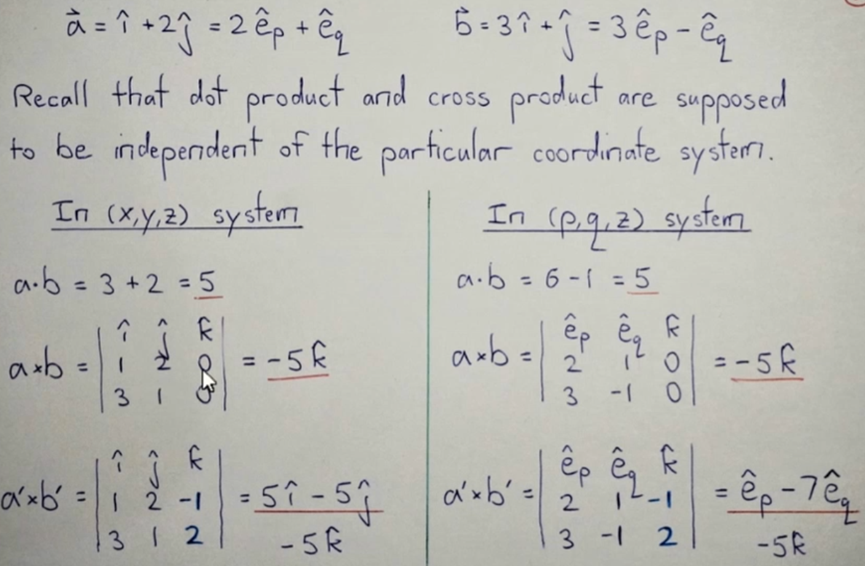 a⃗ = î + 2ĵ = 2ê_p + ê_q    b⃗ = 3î + ĵ = 3ê_p - ê_q
Recall that dot product and cross product are supposed
to be independent of the particular coordinate system.
In (x,y,z) system
a·b = 3 + 2 = 5
a×b = | î ĵ k̂ |
| 1 2 0 | = -5k̂
| 3 1 0 |
a'×b' = | î ĵ k̂ |
| 1 2 -1 | = 5î - 5ĵ
| 3 1 2 | -5k̂
In (p,q,z) system
a·b = 6 - 1 = 5
a×b = | ê_p ê_q k̂ |
| 2 1 0 | = -5k̂
| 3 -1 0 |
a'×b' = | ê_p ê_q k̂ |
| 2 1 -1 | = ê_p - 7ê_q
| 3 -1 2 | -5k̂